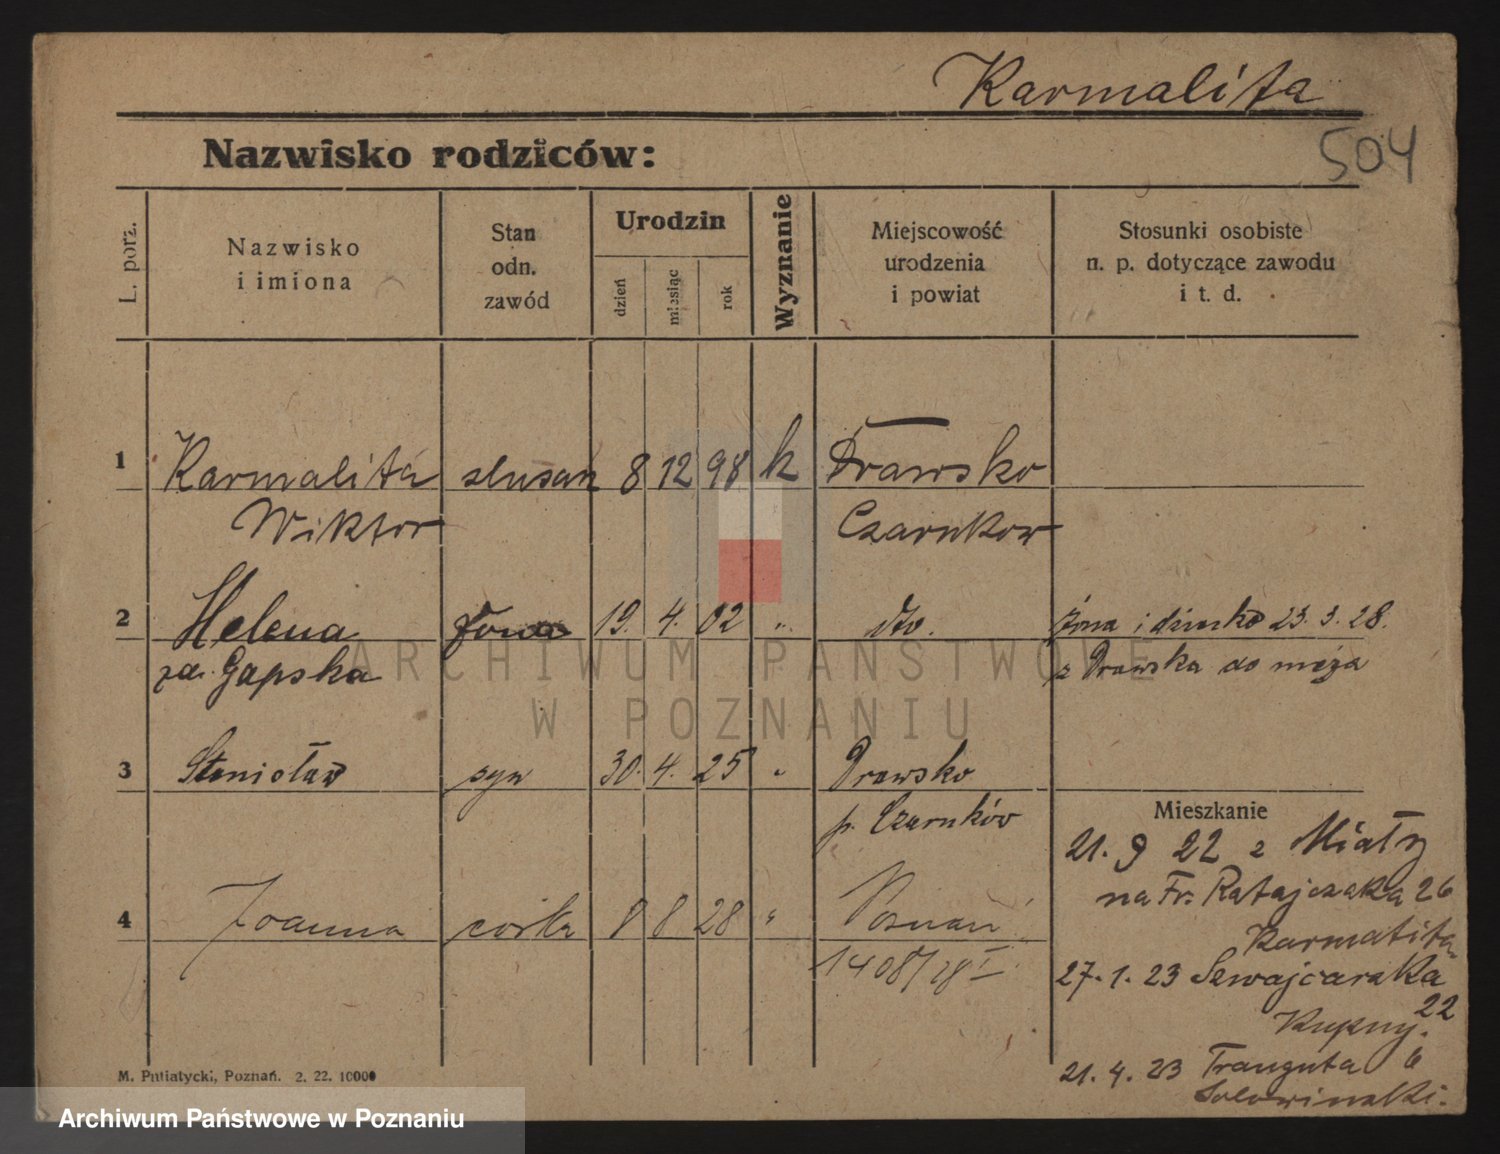 Karmalita
504
Nazwisko rodziców:
L. porz.
Nazwisko
i imiona
Stan
odn.
zawód
Urodzin
dzień
miesiąc
rok
Wyznanie
Miejscowość
urodzenia
i powiat
Stosunki osobiste
n. p. dotyczące zawodu
i t. d.
1 Karmalita ślusarz 8 12 98 k Drawsko
Wiktor Czarnkow
2 Helena żona 19. 4. 02 " dto. żona i dziecko 23. 3. 28.
zd. Gapska z Drawska do męża
3 Stanisław syn 30. 4. 25 " Drawsko
p. Czarnków
Mieszkanie
21. 9 22 z Miały
na Fr. Ratajczaka 26
4 Joanna córka 8 8 28 " Poznań
Karmalita
1408/28 I
27. 1. 23 Szwajcarska 22
21. 4. 23 Trauguta 6
M. Putiatycki, Poznań. 2. 22. 10000
ARCHIWUM PAŃSTWOWE
W POZNANIU
Archiwum Państwowe w Poznaniu